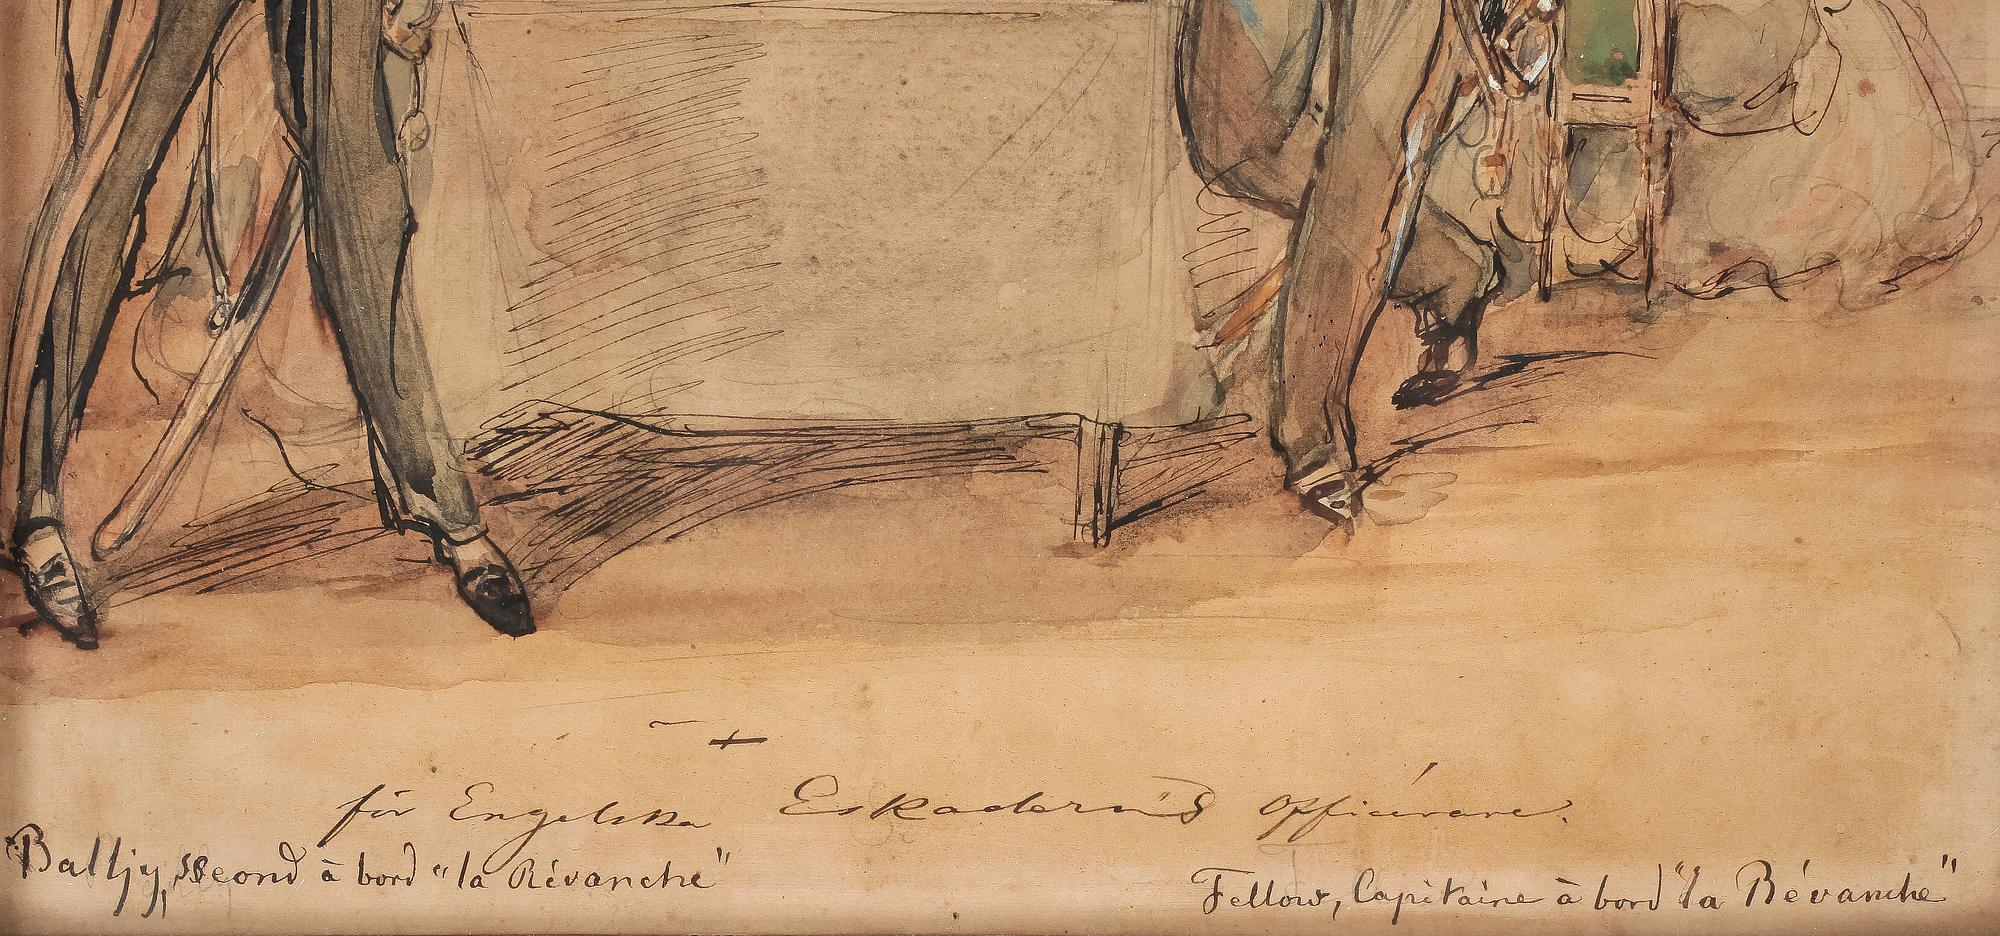 för Engelska Eskaderns officerare.
Balljy, second à bord "la Révanche"
Fellow, Capitaine à bord "la Révanche"